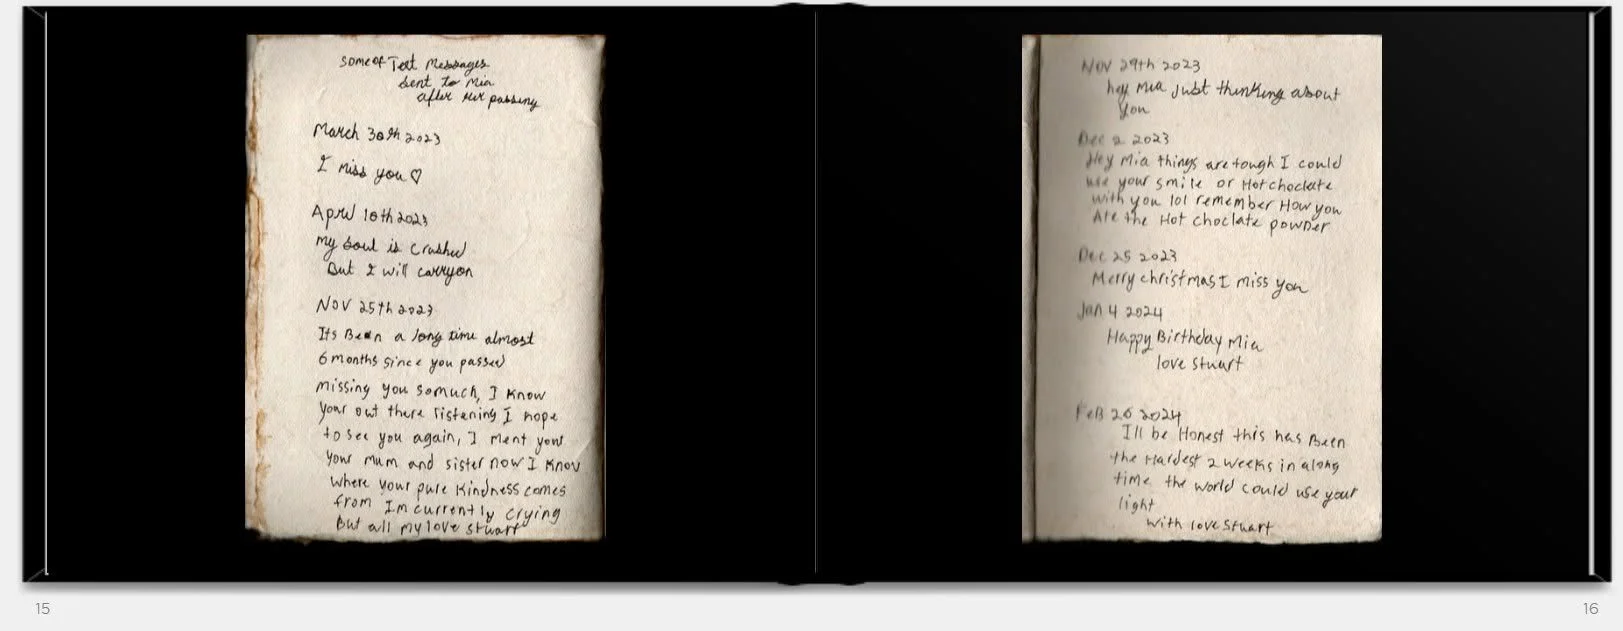 some of Text Messages
sent to Mia
after Her passing
March 30th 2023
I miss you ♡
April 10th 2023
my soul is crushed
But I will carryon
Nov 25th 2023
Its Been a long time almost
6 months since you passed
missing you somuch, I know
your out there listening I hope
to see you again, I ment your
your mum and sister now I know
where your pure kindness comes
from Im currently crying
But all my love stuart
Nov 29th 2023
hey Mia just thinking about
you
Dec 2 2023
Hey Mia things are tough I could
use your smile or Hot choclate
with you lol remember How you
Ate the Hot choclate powder
Dec 25 2023
Merry christmas I miss you
Jan 4 2024
Happy Birthday Mia
love stuart
Feb 26 2024
I'll be Honest this has Been
the Hardest 2 weeks in along
time the world could use your
light
with love stuart
15
16